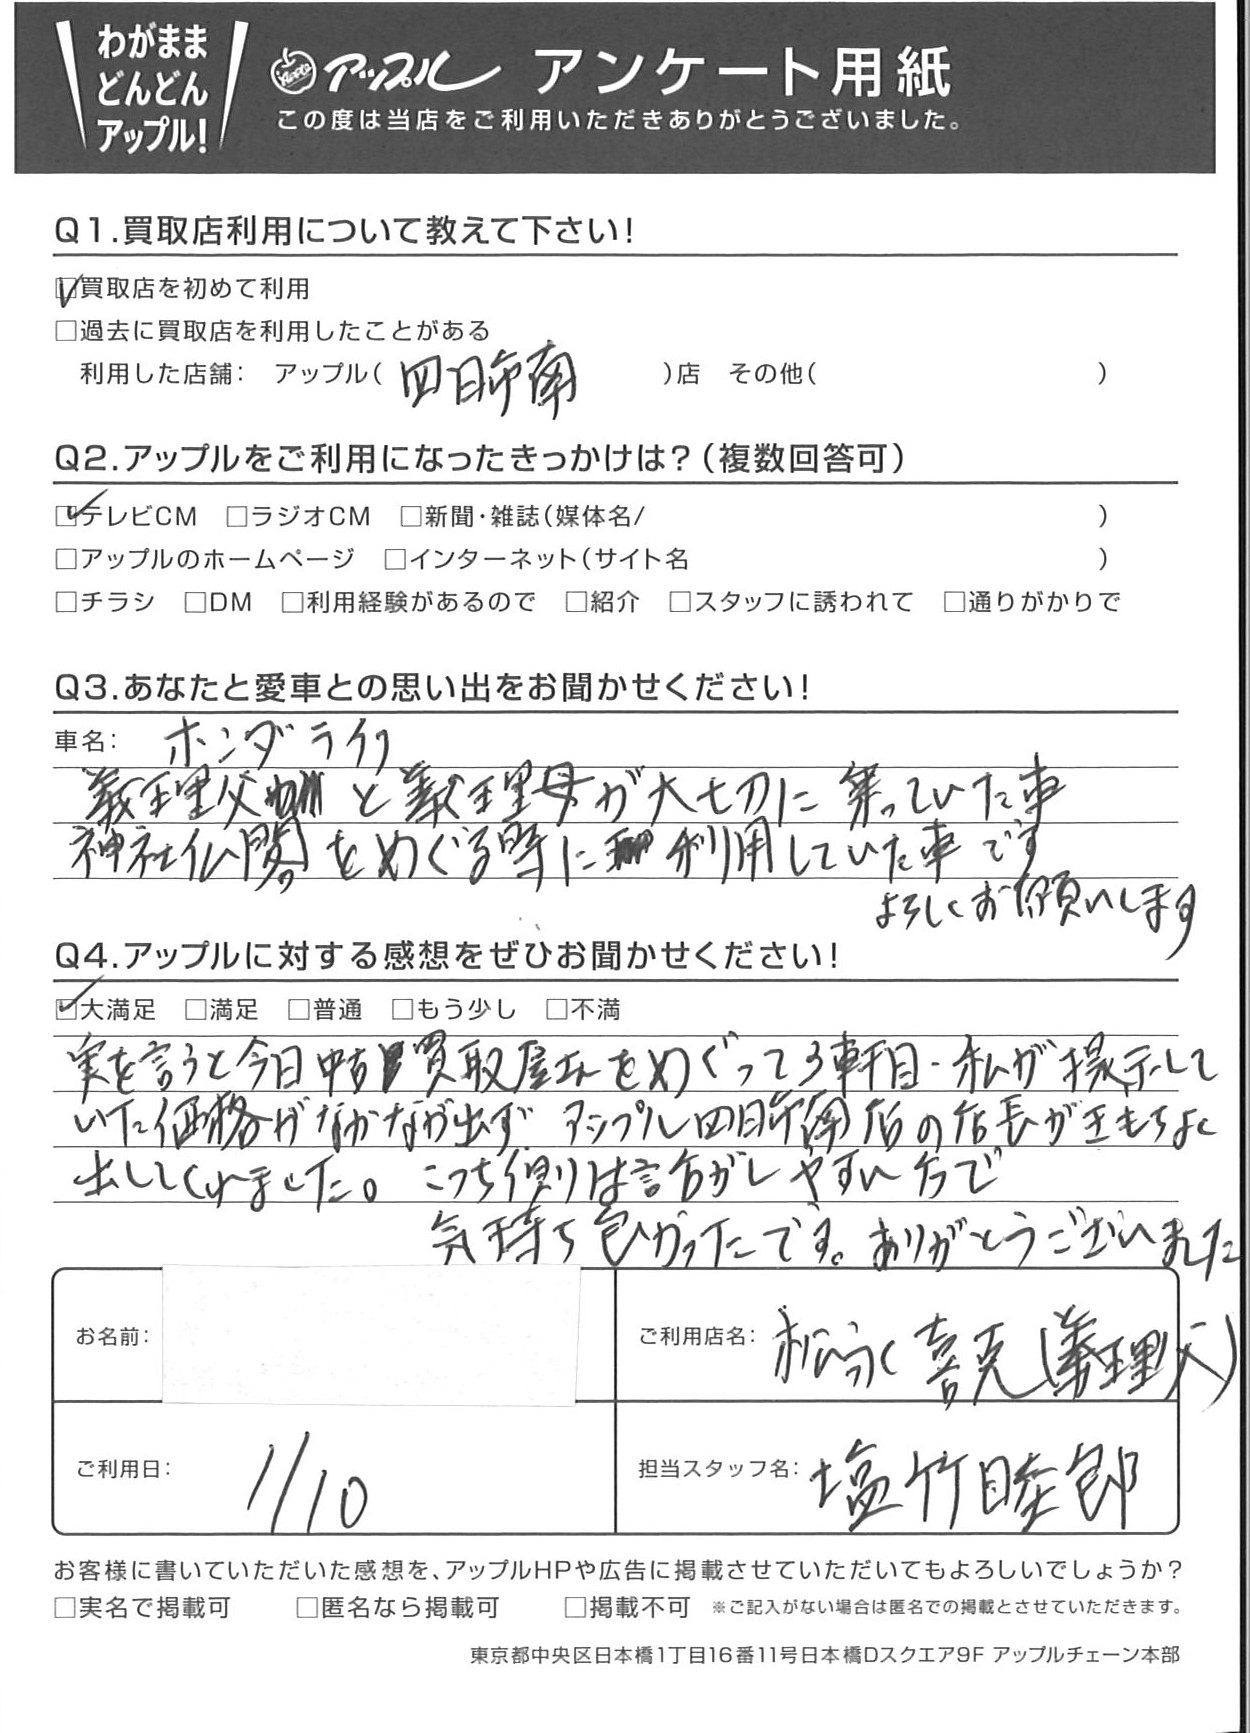 わがまま
どんどん
アップル!
Apple アップル アンケート用紙
この度は当店をご利用いただきありがとうございました。
Q1.買取店利用について教えて下さい!
☑買取店を初めて利用
□過去に買取店を利用したことがある
利用した店舗: アップル( 四日市南 )店 その他( )
Q2.アップルをご利用になったきっかけは?(複数回答可)
☑テレビCM □ラジオCM □新聞・雑誌(媒体名/ )
□アップルのホームページ □インターネット(サイト名 )
□チラシ □DM □利用経験があるので □紹介 □スタッフに誘われて □通りがかりで
Q3.あなたと愛車との思い出をお聞かせください!
車名: ホンダ ライフ
義理父 と義理母が大切に乗っていた車
神社仏閣をめぐる時に 利用していた車です
よろしくお願いします
Q4.アップルに対する感想をぜひお聞かせください!
☑大満足 □満足 □普通 □もう少し □不満
実を言うと今日中古 買取屋さんをめぐって3軒目・私が提示して
いた価格がなかなか出ず アップル四日市南店の店長がきもちよく
出してくれました。こっち側りは話がしやすい方で
気持ち良かったです。ありがとうございました
お名前:
ご利用店名: 松永 喜克(義理父)
ご利用日: 1/10
担当スタッフ名: 塩竹睦郎
お客様に書いていただいた感想を、アップルHPや広告に掲載させていただいてもよろしいでしょうか?
□実名で掲載可 □匿名なら掲載可 □掲載不可 ※ご記入がない場合は匿名での掲載とさせていただきます。
東京都中央区日本橋1丁目16番11号日本橋Dスクエア9F アップルチェーン本部